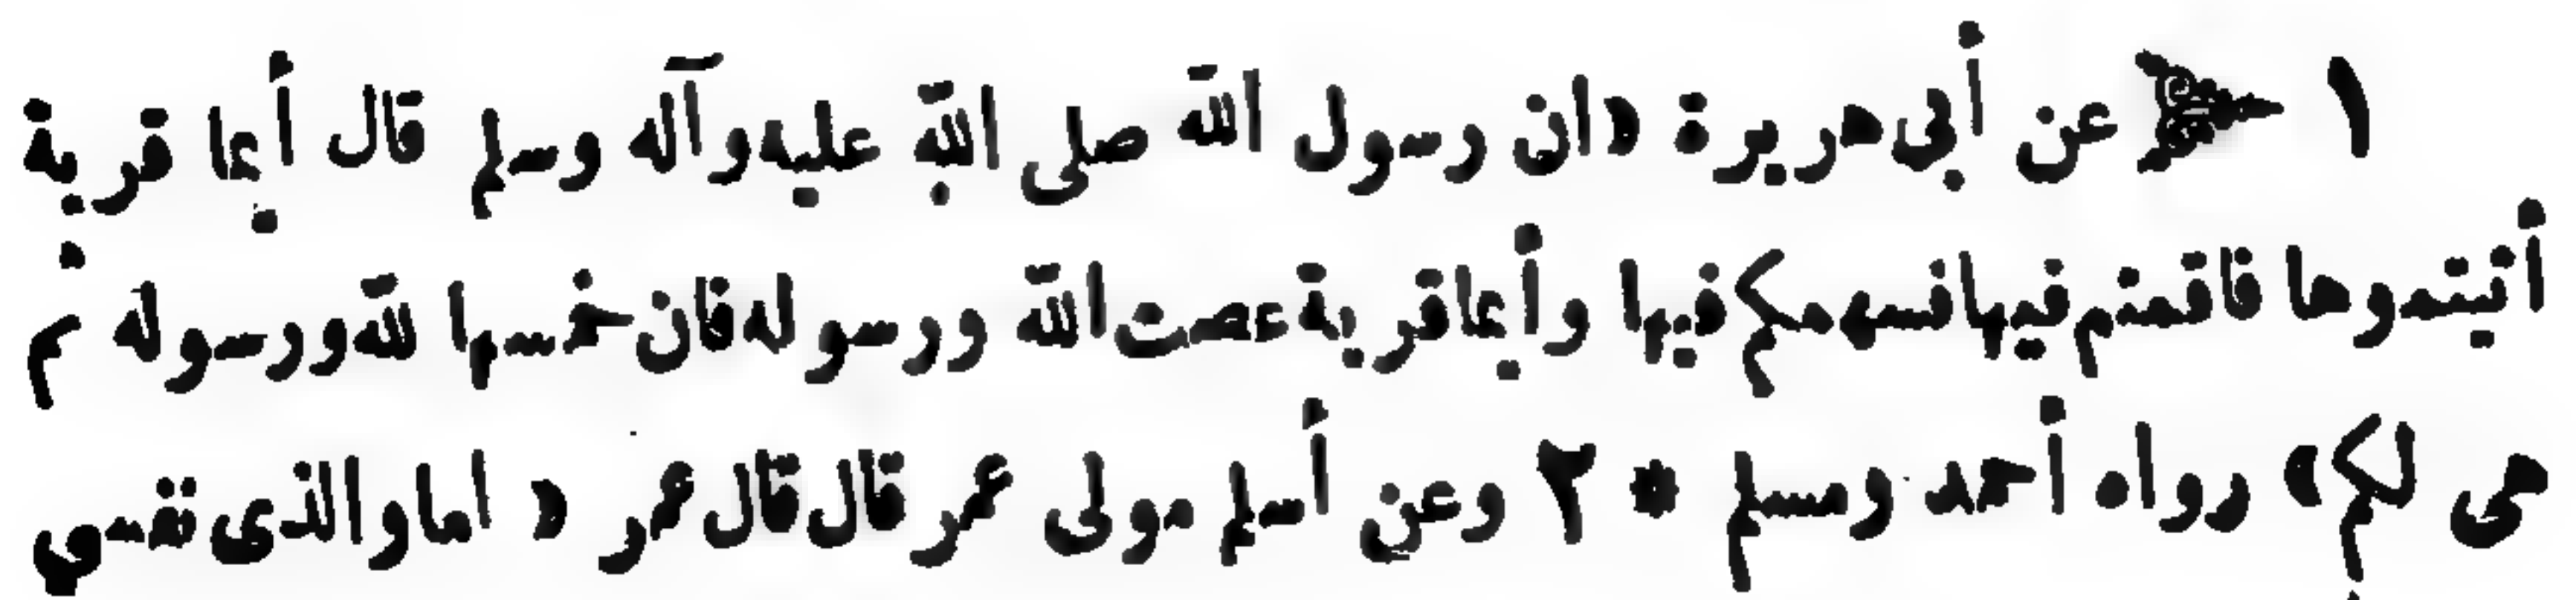 ١ عن أبى هريرة «ان رسول الله صلى الله عليه وآله وسلم قال أيما قرية
أتيتموها فاقمتم فيها فسهمكم فيها وأيما قرية عصت الله ورسوله فان خمسها لله ورسوله ثم
هى لكم» رواه أحمد ومسلم * ٢ وعن أسلم مولى عمر قال قال عمر «اما والذى نفسي